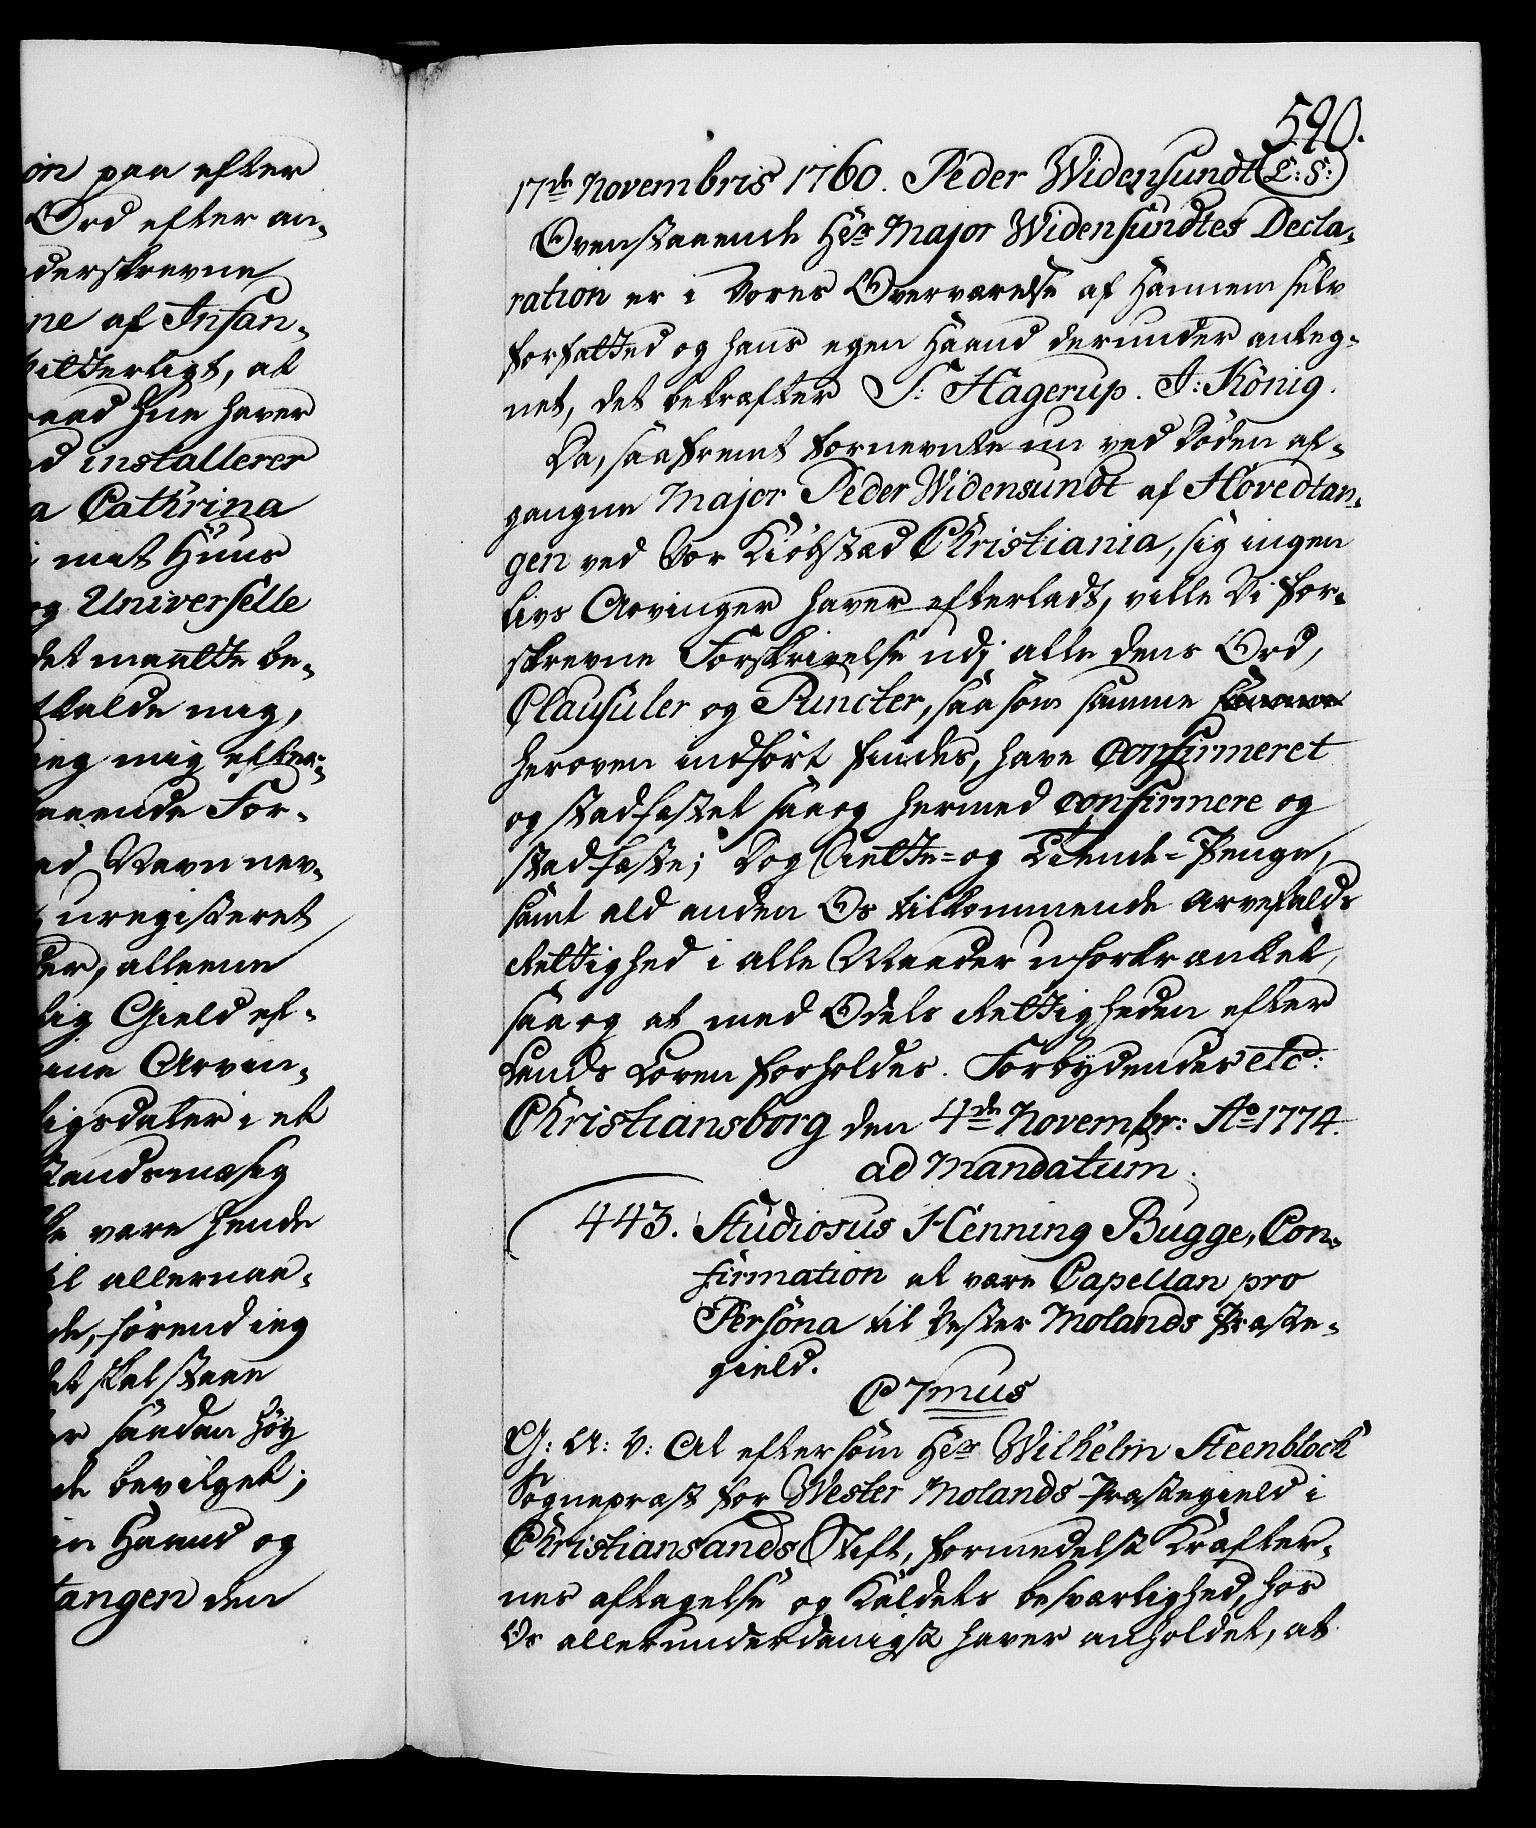 on paa efter
Ord efter an¬
derskrevne
ne af Insan¬
itterligt, at
raad hun haver
d installerer
a Cathrina
mit Huus
og Universelle
det maatte be¬
kalde mig,
ieg mig efter¬
aaende For¬
ed Navn nev¬
uregisteret
er, alleene
lig Gield ef¬
ine Arvin¬
igsdaler i et
tandsmæsig
e være hende
il allernaa¬
de,førend ieg
et skal staae
er saadan høy
de bevilget;
in Haand og
tangen den
590.
17de Novembris 1760. Peder Widensundt (L:S:)
Ovenstaaende Hr Major Widensundtes Decla¬
ration er i Vores Overværelse af Hannem selv
forfatted og hans egen Haand derunder anteg¬
net, det bekræfter S: Hagerup. J: König.
Da, saafremt fornevnte nu ved Døden af¬
gangne Major Peder Widensundt af Hovedtan¬
gen ved Vor Kiøbstad Christiania, sig ingen
livs Arvinger haver efterladt, ville Vi for¬
skrevne Forskrivelse udj alle dens Ord,
Clausuler og Puncter, saasom samme
heroven indført findes, have Confirmeret
og stadfæstet saa og hermed confirmere og
stadfæste; Dog Siette- og Tiende-Penge,
samt ald anden Os tilkommende arvefalds
Rettighed i alle Maader uforkrænket,
saa og at med Odels Rettigheden efter
Lands Loven forholdes. Forbydendes etc:
Christiansborg den 4de Novembr: Ao 1774.
ad Mandatum.
443. Studiosus Henning Bugge, Con¬
firmation at være Capellan pro
Persona til Vester Molands Præste¬
gield.
C 7mus
G: A: V: At eftersom Hr Wilhelm Steenblock
Sognepræst for Wester Molands Præstegield i
Christiansands Stift, formedelst Kræfter¬
nes aftagelse og Kaldets besværlighed, hos
Os allerunderdanigst haver anholdet, at